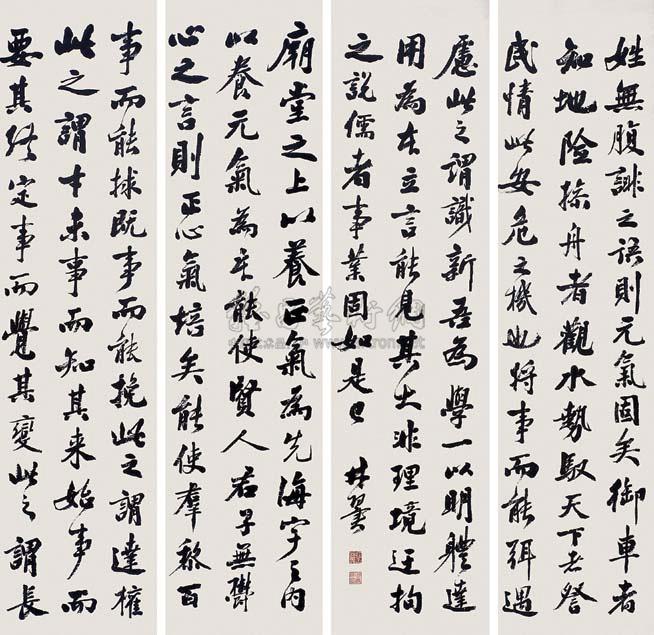 廟堂之上以養正氣為先海宇之内
以養元氣為本能使賢人君子無鬱
心之言則正氣培矣能使羣黎百
姓無腹誹之語則元氣固矣御車者
知地險操舟者觀水勢馭天下者詧
民情此安危之機也將事而能弭遇
事而能捄既事而能挽此之謂達權
此之謂才未事而知其来始事而
要其終定事而覺其變此之謂長
慮此之謂識新吾為學一以明體達
用為本立言能見其大非理境迂拘
之說儒者事業固如是已
林翼